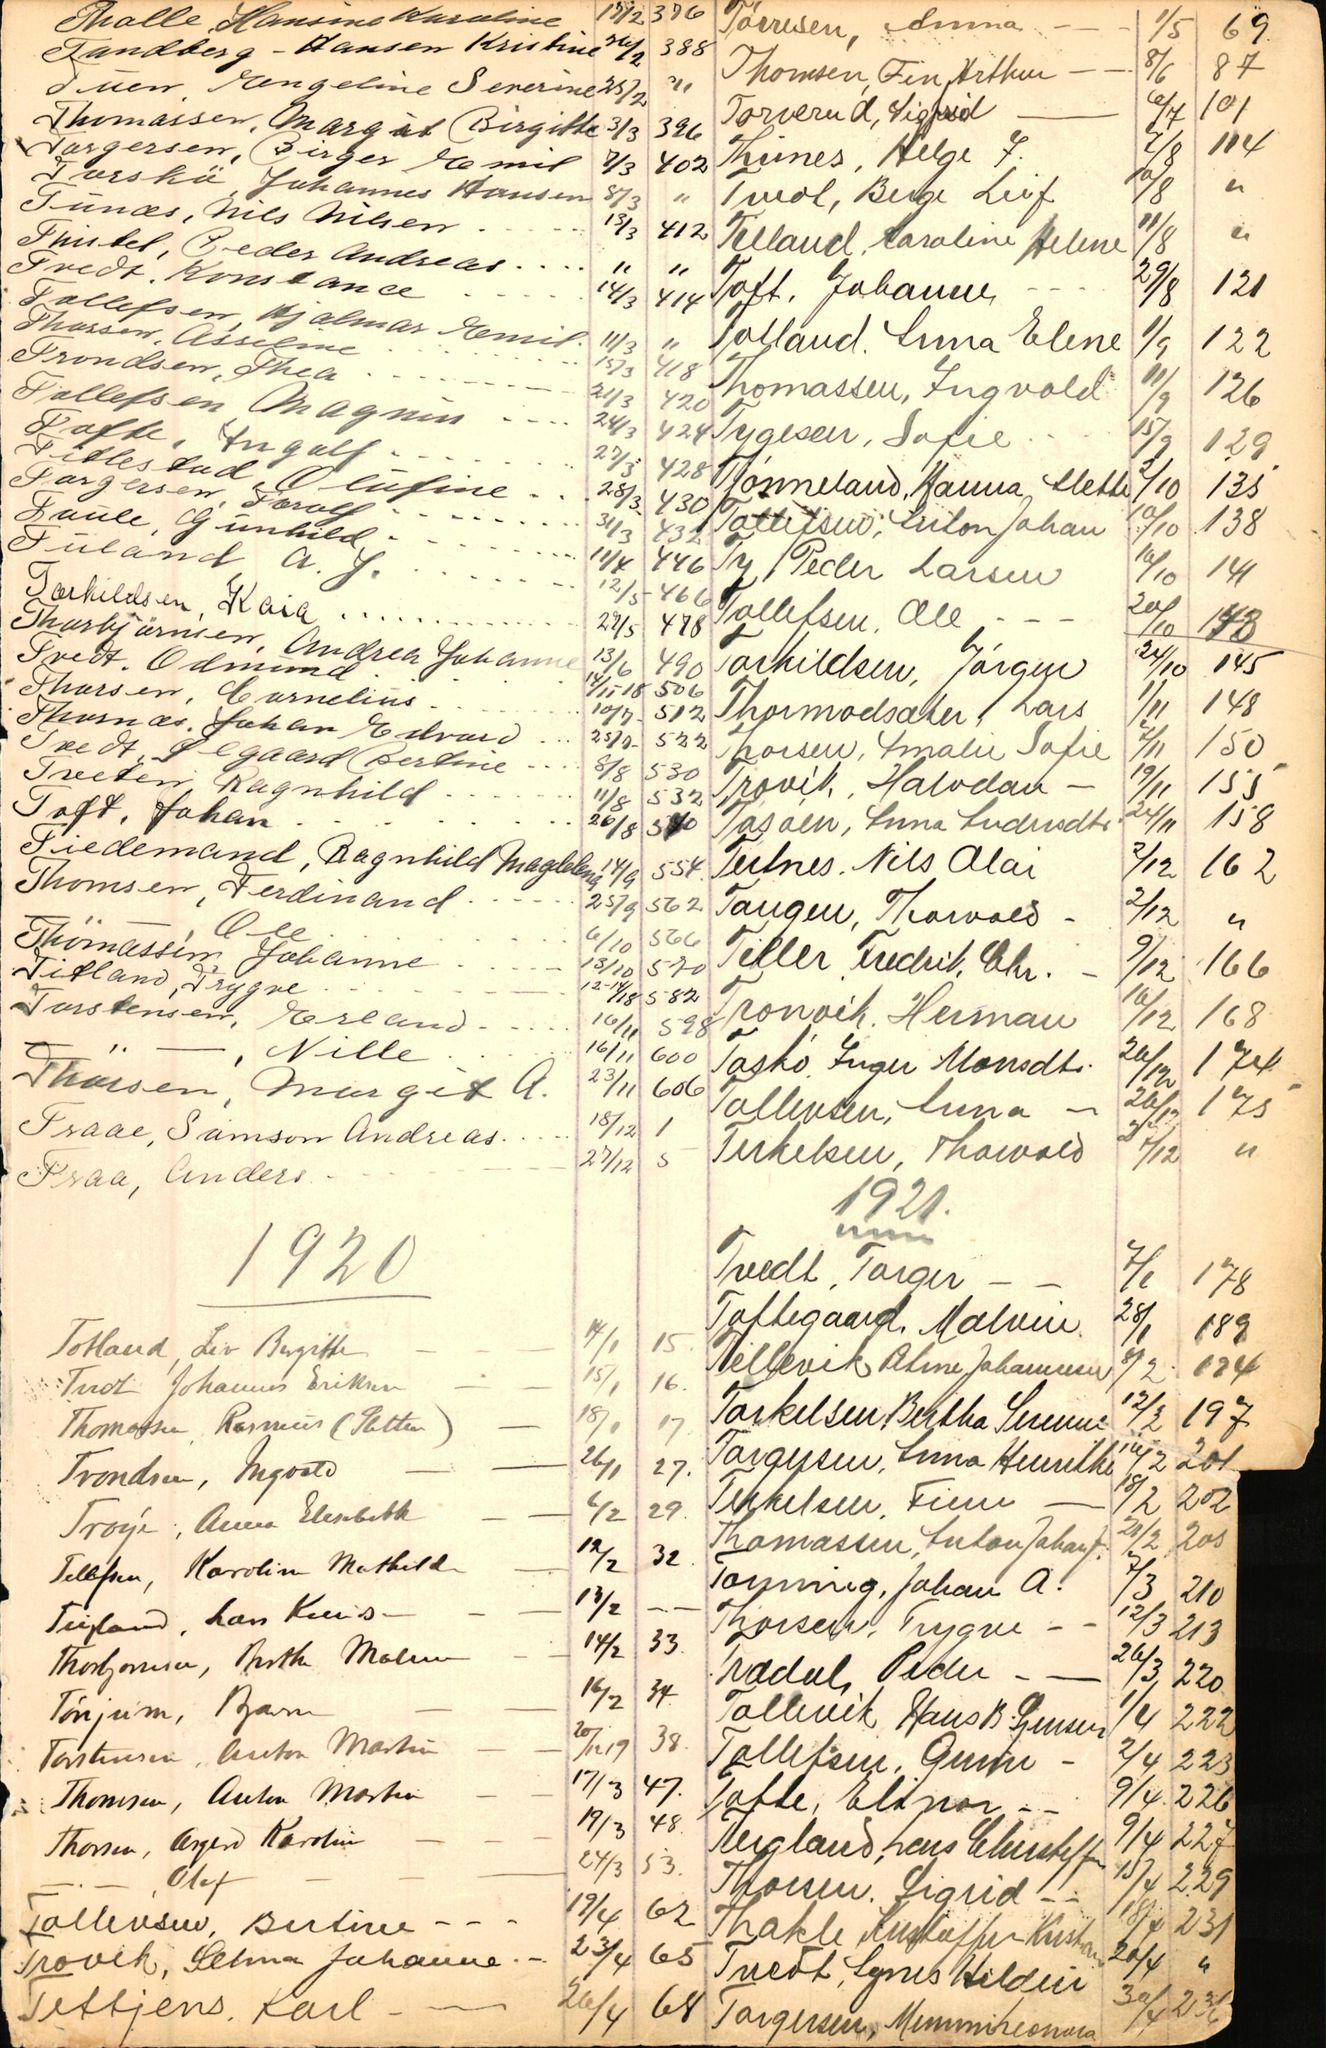 Thalle, Hansine Karoline 17/2 376
Tandberg - Hansen Kristine 26/2 388
Tuen, Engeline Severine 25/2 "
Thomassen, Margit Birgitte 3/3 396
Torgersen, Birger Emil 7/3 402
Torskö, Johannes Hansen 8/3 "
Tunæs, Nils Nilsen 13/3 412
Thistel, Peder Andreas " "
Tvedt. Konstance 14/3 414
Tollefsen, Hjalmar Emil. 11/3 "
Thorsen, Asseline 15/3 418
Trondsen, Thea 21/3 420
Tollefsen Magnus 24/3 424
Tofte, Ingolf 27/3 428
Titlestad, Olufine 28/3 430
Torgersen, Torolf 31/3 432
Taule, Gunhild 11/4 446
Tuland A. J. 12/5 466
Torkildsen, Kaia 29/5 478
Thorbjørnsen, Andrea Johanne 13/6 490
Tvedt. Odmund 506
Thorsen, Cornelius 10/7 512
Thornæs, Johan Edvard 522
Tvedt, Bertine 8/8 530
Tveten Ragnhild 11/8 532
Toft, Johan 26/8 540
Tiedemand, Ragnhild Magdalena 14/9 554
Thomsen, Ferdinand 25/9 562
— " — Ole 6/10 566
Thomassen, Johanne 13/10 570
Titland, Trygve 582
Torstensen, Erland 16/11 598
— " —, Nille 16/11 600
Thorsen, Margit A. 23/11 606
Traae, Samson Andreas 18/12 1
Traa, Anders 27/12 5
1920
Totland, Liv Birgitte 14/1 15.
Tvedt Johannes Eriksen 15/1 16.
Thomassen Rasmus 18/1 17
Trondsen, Ingvald 26/1 27.
Troye, Anna Elisabeth 6/2 29.
Tollefsen, Karoline Mathilde 12/2 32.
Lars 13/2 --
Thorbjørnsen, Berthe Malene 14/2 33.
Tönjum, Bjarne 16/2 34.
Torstensen, Anton Martin 38.
Thomsen, Anton Martin 17/3 47.
Thorsen, Karoline 19/3 48.
—"— Olaf 24/3 53.
Tollevsen, Bertine 19/4 62
Trovik, Selma Johanne 23/4 65
Tettjens. Karl 26/4 68
Tørresen, Anna 1/5 69
Thomsen, Fin Arthur 8/6 87
Torverud, Sigfrid 101
Thunes, Helge F. 7/8 114
Tvedt, Berge Leif 10/8 "
Telland, Karoline Helene 11/8 "
Toft, Johanne 29/8 121
Tolland. Anna Elene 1/9 122
Thomassen, Ingvald 11/9 126
Tygesen, Sofie 15/9 129
Tönneland, Hanna Mette 2/10 135
Tollefsen, Anton Johan 10/10 138
Ty, Peder Larsen 16/10 141
Tollefsen. Ole 20/10 143
Torkildsen, Jörgen 24/10 145
Thormodsæter, Lars 1/11 148
Thorsen, Amalie Sofie 7/11 150
Trovik, Halvdan 19/11 155
Tasåen, Anna 24/11 158
Tertnes. Nils Olai 2/12 162
Tangen, Thorvald 2/12 "
Teller Fredrik Chr. 9/12 166
Tronvik. Herman 16/12 168
Taskö, Inger Monsdtr. 20/12 174
Tollevsen, Anna 20/12 175
Terkelsen, Thorvald "
1921.
Tvedt, Torger 7/1 178
Toftegaard, Malvin. 28/1 189
Tellevik 8/2 194
Torkelsen, Bertha Severine 12/2 197
Torgersen, Anna Henrikke 16/2 201
Terkelsen, Finn 18/2 202
Thomassen, Anton Johan J. 20/2 205
Tonning, Johan A. 7/3 210
Thorsen, Trygve 12/3 213
Trædal, Peder 26/3 220
Tollevik Hans B. Jensen 1/4 222
Tollefsen, Gunn 2/4 223
Tofte, Elinor 9/4 226
Tergland, Lars 9/4 227
Thorsen. Sigrid 15/4 229
Thakle Kristoffer Kristian 18/4 231
Tvedt, Agnes 20/4 "
Torgersen, Mimmi Leonora 30/4 236